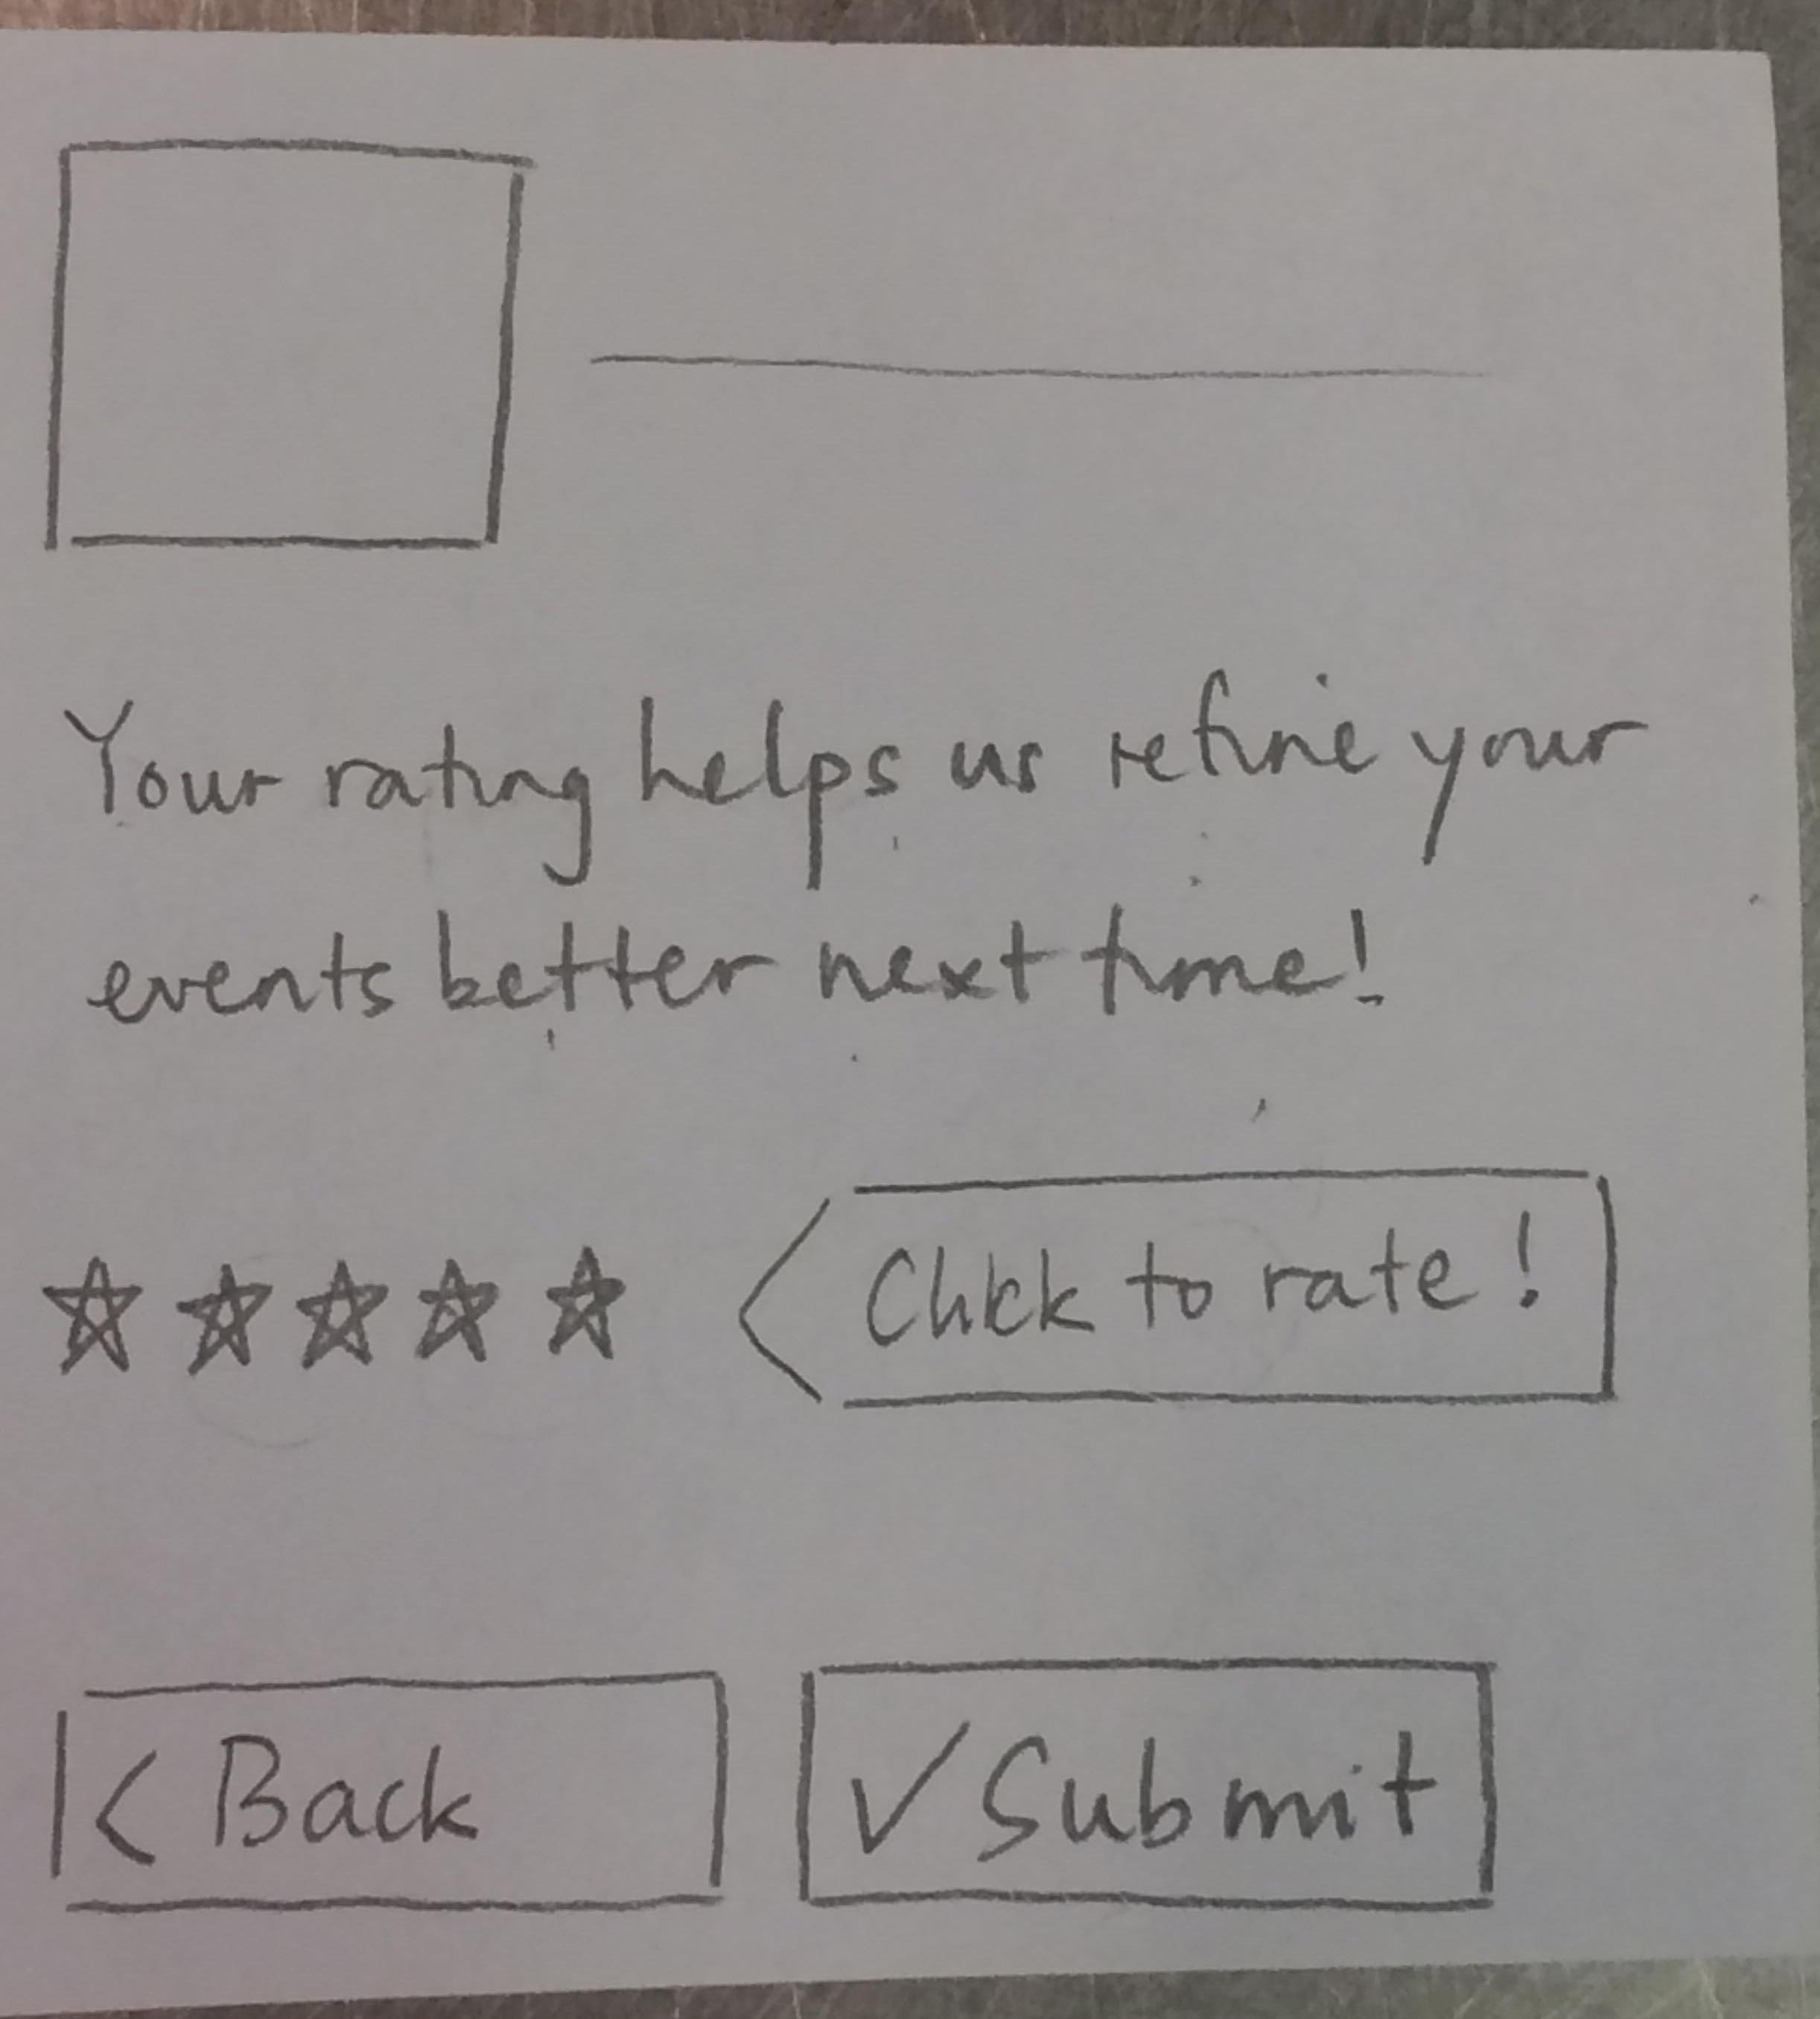 Your rating helps us refine your
events better next time!
Click to rate!
< Back
✓ Submit